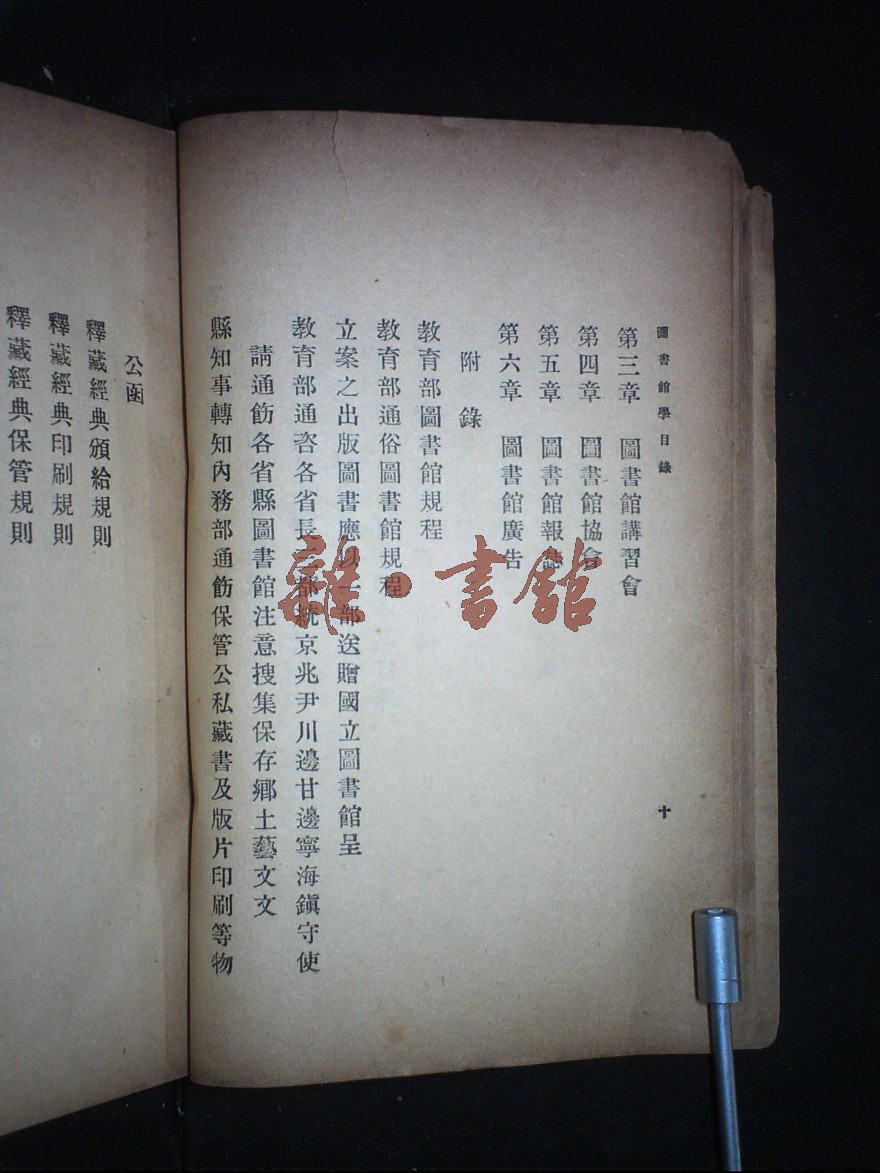 圖書館學目錄
十
第三章　圖書館講習會
第四章　圖書館協會
第五章　圖書館報誌
第六章　圖書館廣告
附錄
教育部圖書館規程
教育部通俗圖書館規程
立案之出版圖書應以一部送贈國立圖書館呈
教育部通咨各省長三都統京兆尹川邊甘邊寧海鎭守使
請通飭各省縣圖書館注意搜集保存鄉土藝文文
縣知事轉知內務部通飭保管公私藏書及版片印刷等物
公函
釋藏經典頒給規則
釋藏經典印刷規則
釋藏經典保管規則
雜·書館